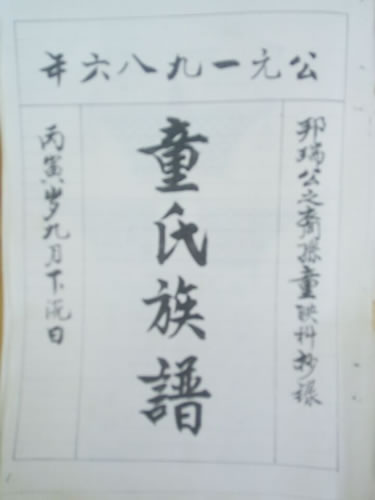 公元一九八六年
邦瑞公之裔孫童科抄
童氏族譜
丙寅岁九月下浣日